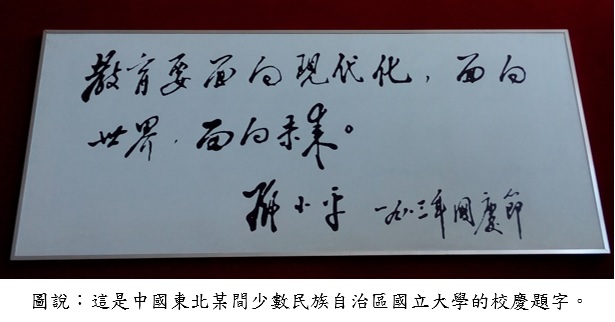 教育要面向現代化，面向
世界，面向未来。
邓小平 一九八三年國慶節
圖說：這是中國東北某間少數民族自治區國立大學的校慶題字。